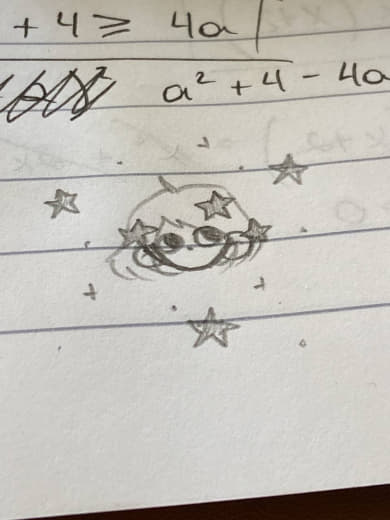 + 4 ≥ 4a
a² + 4 - 4a